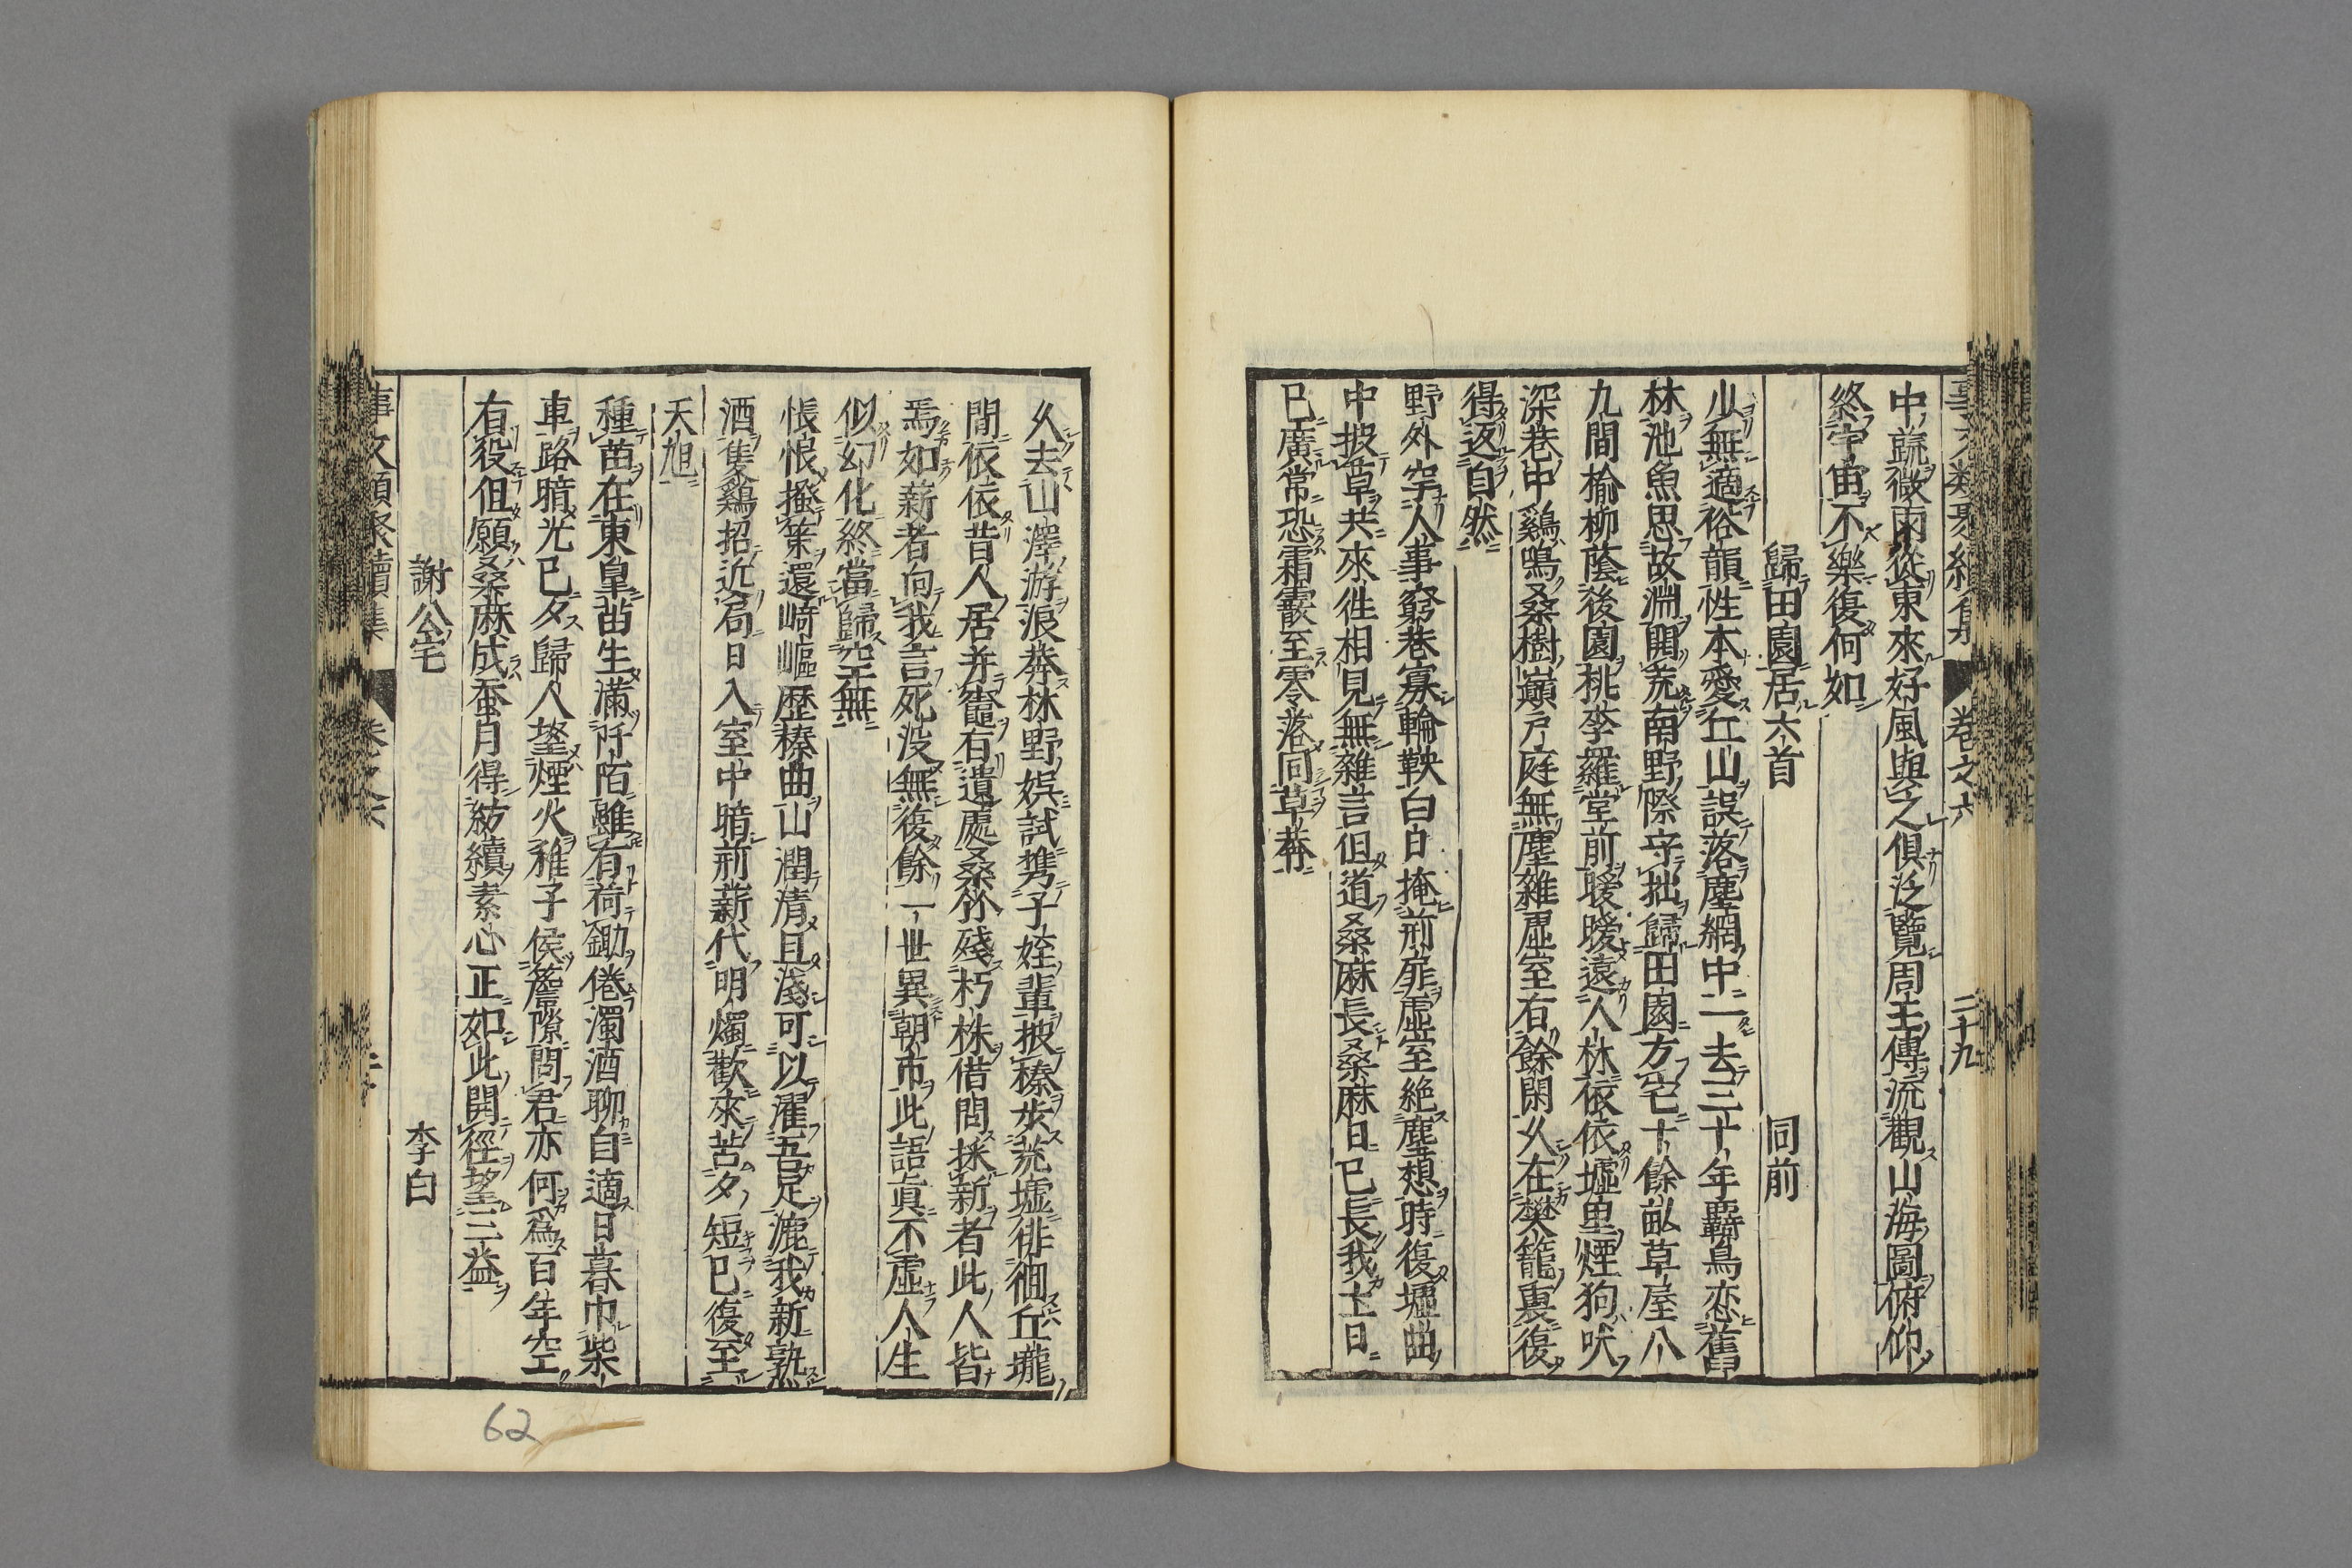 事文類聚續集 卷之六 二十九
中蔬微雨從東來好風與之俱泛覽周王傳流觀山海圖俯仰
終宇宙不樂復何如
歸田園居六首 同前
少無適俗韻性本愛丘山誤落塵網中一去三十年羇鳥恋舊
林池魚思故淵開荒南野際守拙歸田園方宅十餘畝草屋八
九間榆柳蔭後園桃李羅堂前曖曖遠人林依依墟里煙狗吠
深巷中鷄鳴桑樹巔戶庭無塵雜虛室有餘閑久在樊籠裏復
得返自然
野外罕人事窮巷寡輪鞅白日掩荊扉虛室絕塵想時復墟曲
中披草共來徃相見無雜言但道桑麻長桑麻日已長我土日
已廣常恐霜霰至零落同草莽
久去山澤游浪莽林野娯試携子姪輩披榛步荒墟徘徊丘壠
間依依昔人居井竈有遺處桑竹殘朽株借問採薪者此人皆
焉如薪者向我言死没無復餘一世異朝市此語眞不虛人生
似幻化終當歸空無
悵恨搔策還崎嶇歷榛曲山澗清且淺可以濯吾足漉我新熟
酒隻鷄招近局日入室中暗荊薪代明燭歡來苦夕短已復至
天旭
種苗在東皐苗生滿阡陌雖有荷鋤倦濁酒聊自適日暮巾柴
車路暗光已夕歸人望煙火稚子候簷隙問君亦何爲百年空
有役但願桑麻成蚕月得紡績素心正如此開徑望三益
謝公宅 李白
事文類聚續集 卷之六 三十
62